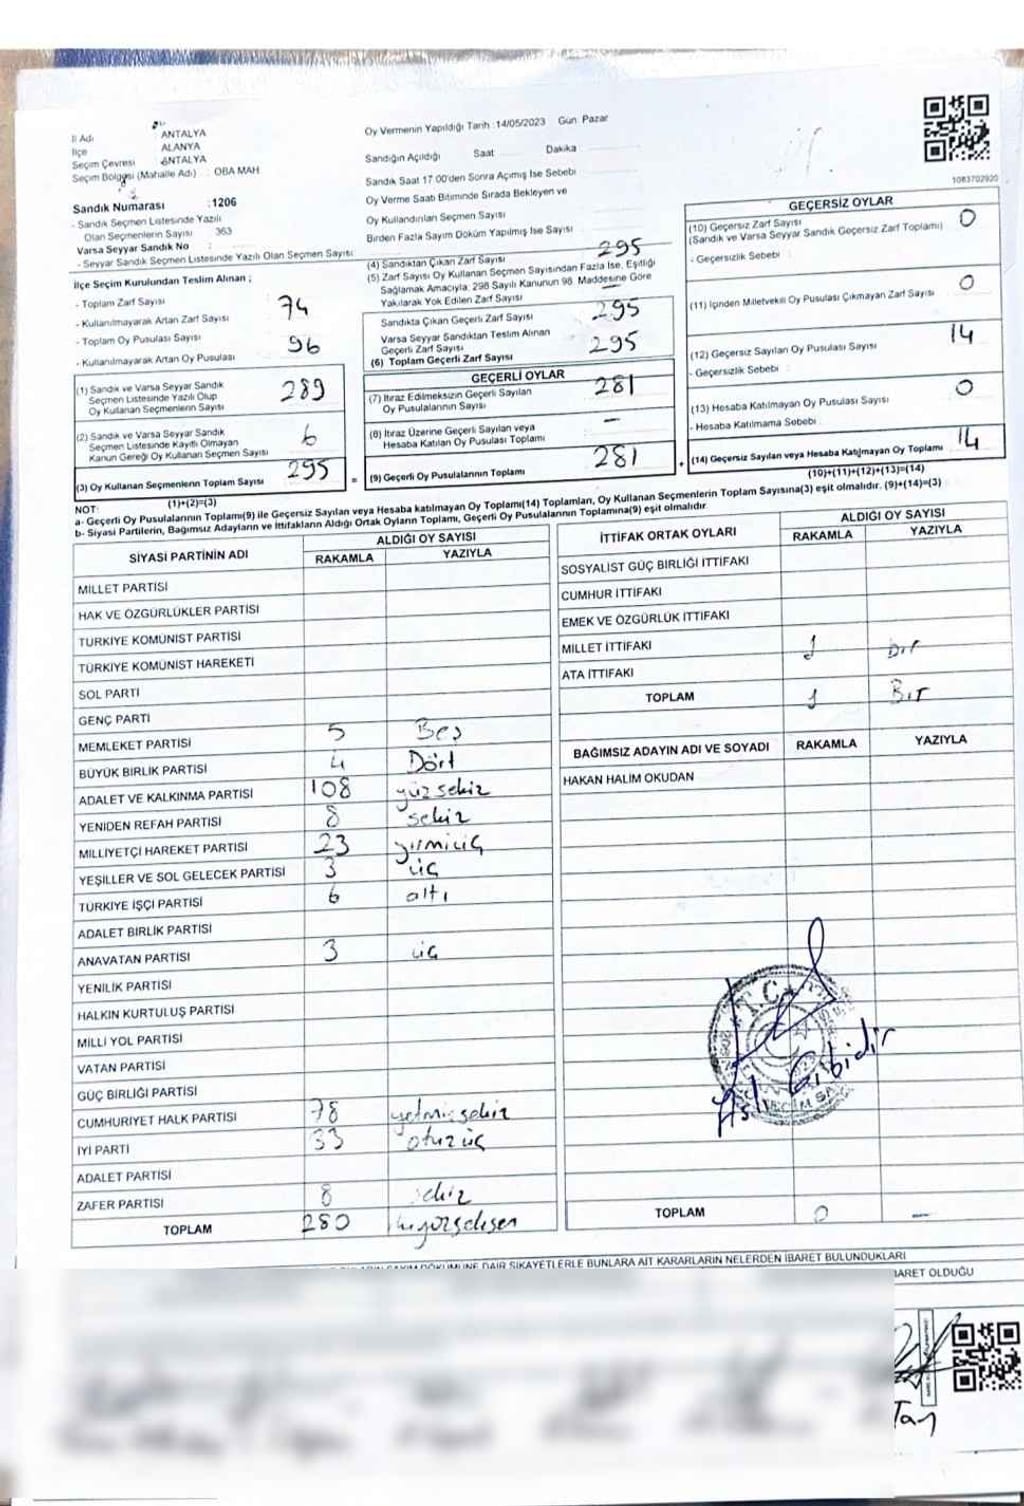 İl Adı ANTALYA
İlçe ALANYA
Seçim Çevresi ANTALYA
Seçim Bölgesi (Mahalle Adı) : OBA MAH
Sandık Numarası : 1206
- Sandık Seçmen Listesinde Yazılı
Olan Seçmenlerin Sayısı 363
Varsa Seyyar Sandık No :
- Seyyar Sandık Seçmen Listesinde Yazılı Olan Seçmen Sayısı:
Oy Vermenin Yapıldığı Tarih : 14/05/2023 Gün Pazar
Sandığın Açıldığı Saat Dakika
Sandık Saat 17.00'den Sonra Açımış İse Sebebi
Oy Verme Saati Bitiminde Sırada Bekleyen ve
Oy Kullandırılan Seçmen Sayısı
Birden Fazla Sayım Döküm Yapılmış İse Sayısı
1083702920
İlçe Seçim Kurulundan Teslim Alınan ;
- Toplam Zarf Sayısı
- Kullanılmayarak Artan Zarf Sayısı 74
- Toplam Oy Pusulası Sayısı
- Kullanılmayarak Artan Oy Pusulası 96
(1) Sandık ve Varsa Seyyar Sandık
Seçmen Listesinde Yazılı Olup
Oy Kullanan Seçmenlerin Sayısı 289
(2) Sandık ve Varsa Seyyar Sandık
Seçmen Listesinde Kayıtlı Olmayan
Kanun Gereği Oy Kullanan Seçmen Sayısı 6
(3) Oy Kullanan Seçmenlerin Toplam Sayısı 295
(1)+(2)=(3)
(4) Sandıktan Çıkan Zarf Sayısı 295
(5) Zarf Sayısı Oy Kullanan Seçmen Sayısından Fazla İse, Eşitliği
Sağlamak Amacıyla; 298 Sayılı Kanunun 98. Maddesine Göre
Yakılarak Yok Edilen Zarf Sayısı –
Sandıkta Çıkan Geçerli Zarf Sayısı 295
Varsa Seyyar Sandıktan Teslim Alınan
Geçerli Zarf Sayısı
(6) Toplam Geçerli Zarf Sayısı 295
GEÇERLİ OYLAR
(7) İtiraz Edilmeksizin Geçerli Sayılan
Oy Pusulalarının Sayısı 281
(8) İtiraz Üzerine Geçerli Sayılan veya
Hesaba Katılan Oy Pusulası Toplamı –
= (9) Geçerli Oy Pusulalarının Toplamı 281
GEÇERSİZ OYLAR
(10) Geçersiz Zarf Sayısı 0
(Sandık ve Varsa Seyyar Sandık Geçersiz Zarf Toplamı)
- Geçersizlik Sebebi :
(11) İçinden Milletvekili Oy Pusulası Çıkmayan Zarf Sayısı 0
(12) Geçersiz Sayılan Oy Pusulası Sayısı 14
- Geçersizlik Sebebi :
(13) Hesaba Katılmayan Oy Pusulası Sayısı 0
- Hesaba Katılmama Sebebi :
+ (14) Geçersiz Sayılan veya Hesaba Katılmayan Oy Toplamı 14
(10)+(11)+(12)+(13)=(14)
NOT:
a- Geçerli Oy Pusulalarının Toplamı(9) ile Geçersiz Sayılan veya Hesaba katılmayan Oy Toplamı(14) Toplamları, Oy Kullanan Seçmenlerin Toplam Sayısına(3) eşit olmalıdır. (9)+(14)=(3)
b- Siyasi Partilerin, Bağımsız Adayların ve İttifakların Aldığı Ortak Oyların Toplamı, Geçerli Oy Pusulalarının Toplamına(9) eşit olmalıdır
SİYASİ PARTİNİN ADI ALDIĞI OY SAYISI
RAKAMLA YAZIYLA
MİLLET PARTİSİ
HAK VE ÖZGÜRLÜKLER PARTİSİ
TÜRKİYE KOMÜNİST PARTİSİ
TÜRKİYE KOMÜNİST HAREKETİ
SOL PARTİ
GENÇ PARTİ
MEMLEKET PARTİSİ 5 Beş
BÜYÜK BİRLİK PARTİSİ 4 Dört
ADALET VE KALKINMA PARTİSİ 108 yüzsekiz
YENİDEN REFAH PARTİSİ 8 sekiz
MİLLİYETÇİ HAREKET PARTİSİ 23 yirmiüç
YEŞİLLER VE SOL GELECEK PARTİSİ 3 üç
TÜRKİYE İŞÇİ PARTİSİ 6 altı
ADALET BİRLİK PARTİSİ
ANAVATAN PARTİSİ 3 üç
YENİLİK PARTİSİ
HALKIN KURTULUŞ PARTİSİ
MİLLİ YOL PARTİSİ
VATAN PARTİSİ
GÜÇ BİRLİĞİ PARTİSİ
CUMHURİYET HALK PARTİSİ 78 yetmişsekiz
İYİ PARTİ 33 otuzüç
ADALET PARTİSİ
ZAFER PARTİSİ 8 sekiz
TOPLAM 280 ikiyüzseksen
İTTİFAK ORTAK OYLARI ALDIĞI OY SAYISI
RAKAMLA YAZIYLA
SOSYALİST GÜÇ BİRLİĞİ İTTİFAKI
CUMHUR İTTİFAKI
EMEK VE ÖZGÜRLÜK İTTİFAKI
MİLLET İTTİFAKI 1 Bir
ATA İTTİFAKI
TOPLAM 1 Bir
BAĞIMSIZ ADAYIN ADI VE SOYADI RAKAMLA YAZIYLA
HAKAN HALİM OKUDAN
T.C.
Aslı Gibidir
TOPLAM 0 –
DAİR ŞİKAYETLERLE BUNLARA AİT KARARLARIN NELERDEN İBARET BULUNDUKLARI
İBARET OLDUĞU